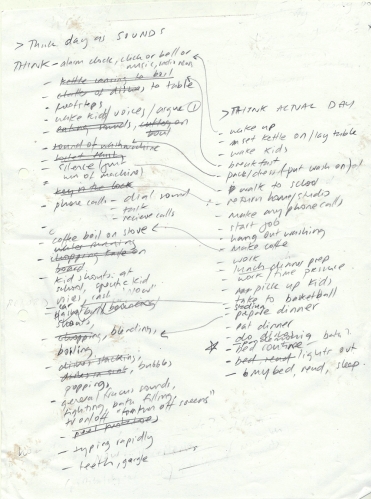 > Think day as SOUNDS
THINK - alarm clock, clock or bell or
music, radio
- kettle coming to boil
- clatter of dishes to table
- footsteps
- wake kids / voices / argue ①
- eating sounds,
bowl
- sound of wash machine
- toilet flush
- silence /
hum of machines
- key in the lock
- phone calls - dial sound
- talk
- recieve calls
- coffee boil on stove
- water running
- chopping knife on
board
- kid shouts: at
school, specific kid
cries, cash "slow"
- car
basketball bouncing
shouts,
- chopping, blending,
boiling
- dishes stacking,
bubbles
poppings,
- general fracus sounds,
fighting, bath filling,
tv on/off "turn off screens"
- typing rapidly
- teeth, gargle
> THINK ACTUAL DAY
- wake up
- set kettle on / lay table
- wake kids
- breakfast
- pack / close / put wash on /
- walk to school
- return home / studio
- make any phone calls
- start job
- hang out washing
- make coffee
- work
- lunch - dinner prep
- work / time pressure
- pick up kids
- take to basketball
- prepare dinner
- eat dinner
- do dishes, bath?
- bed routine
- bed read lights out
- my bed, read, sleep.